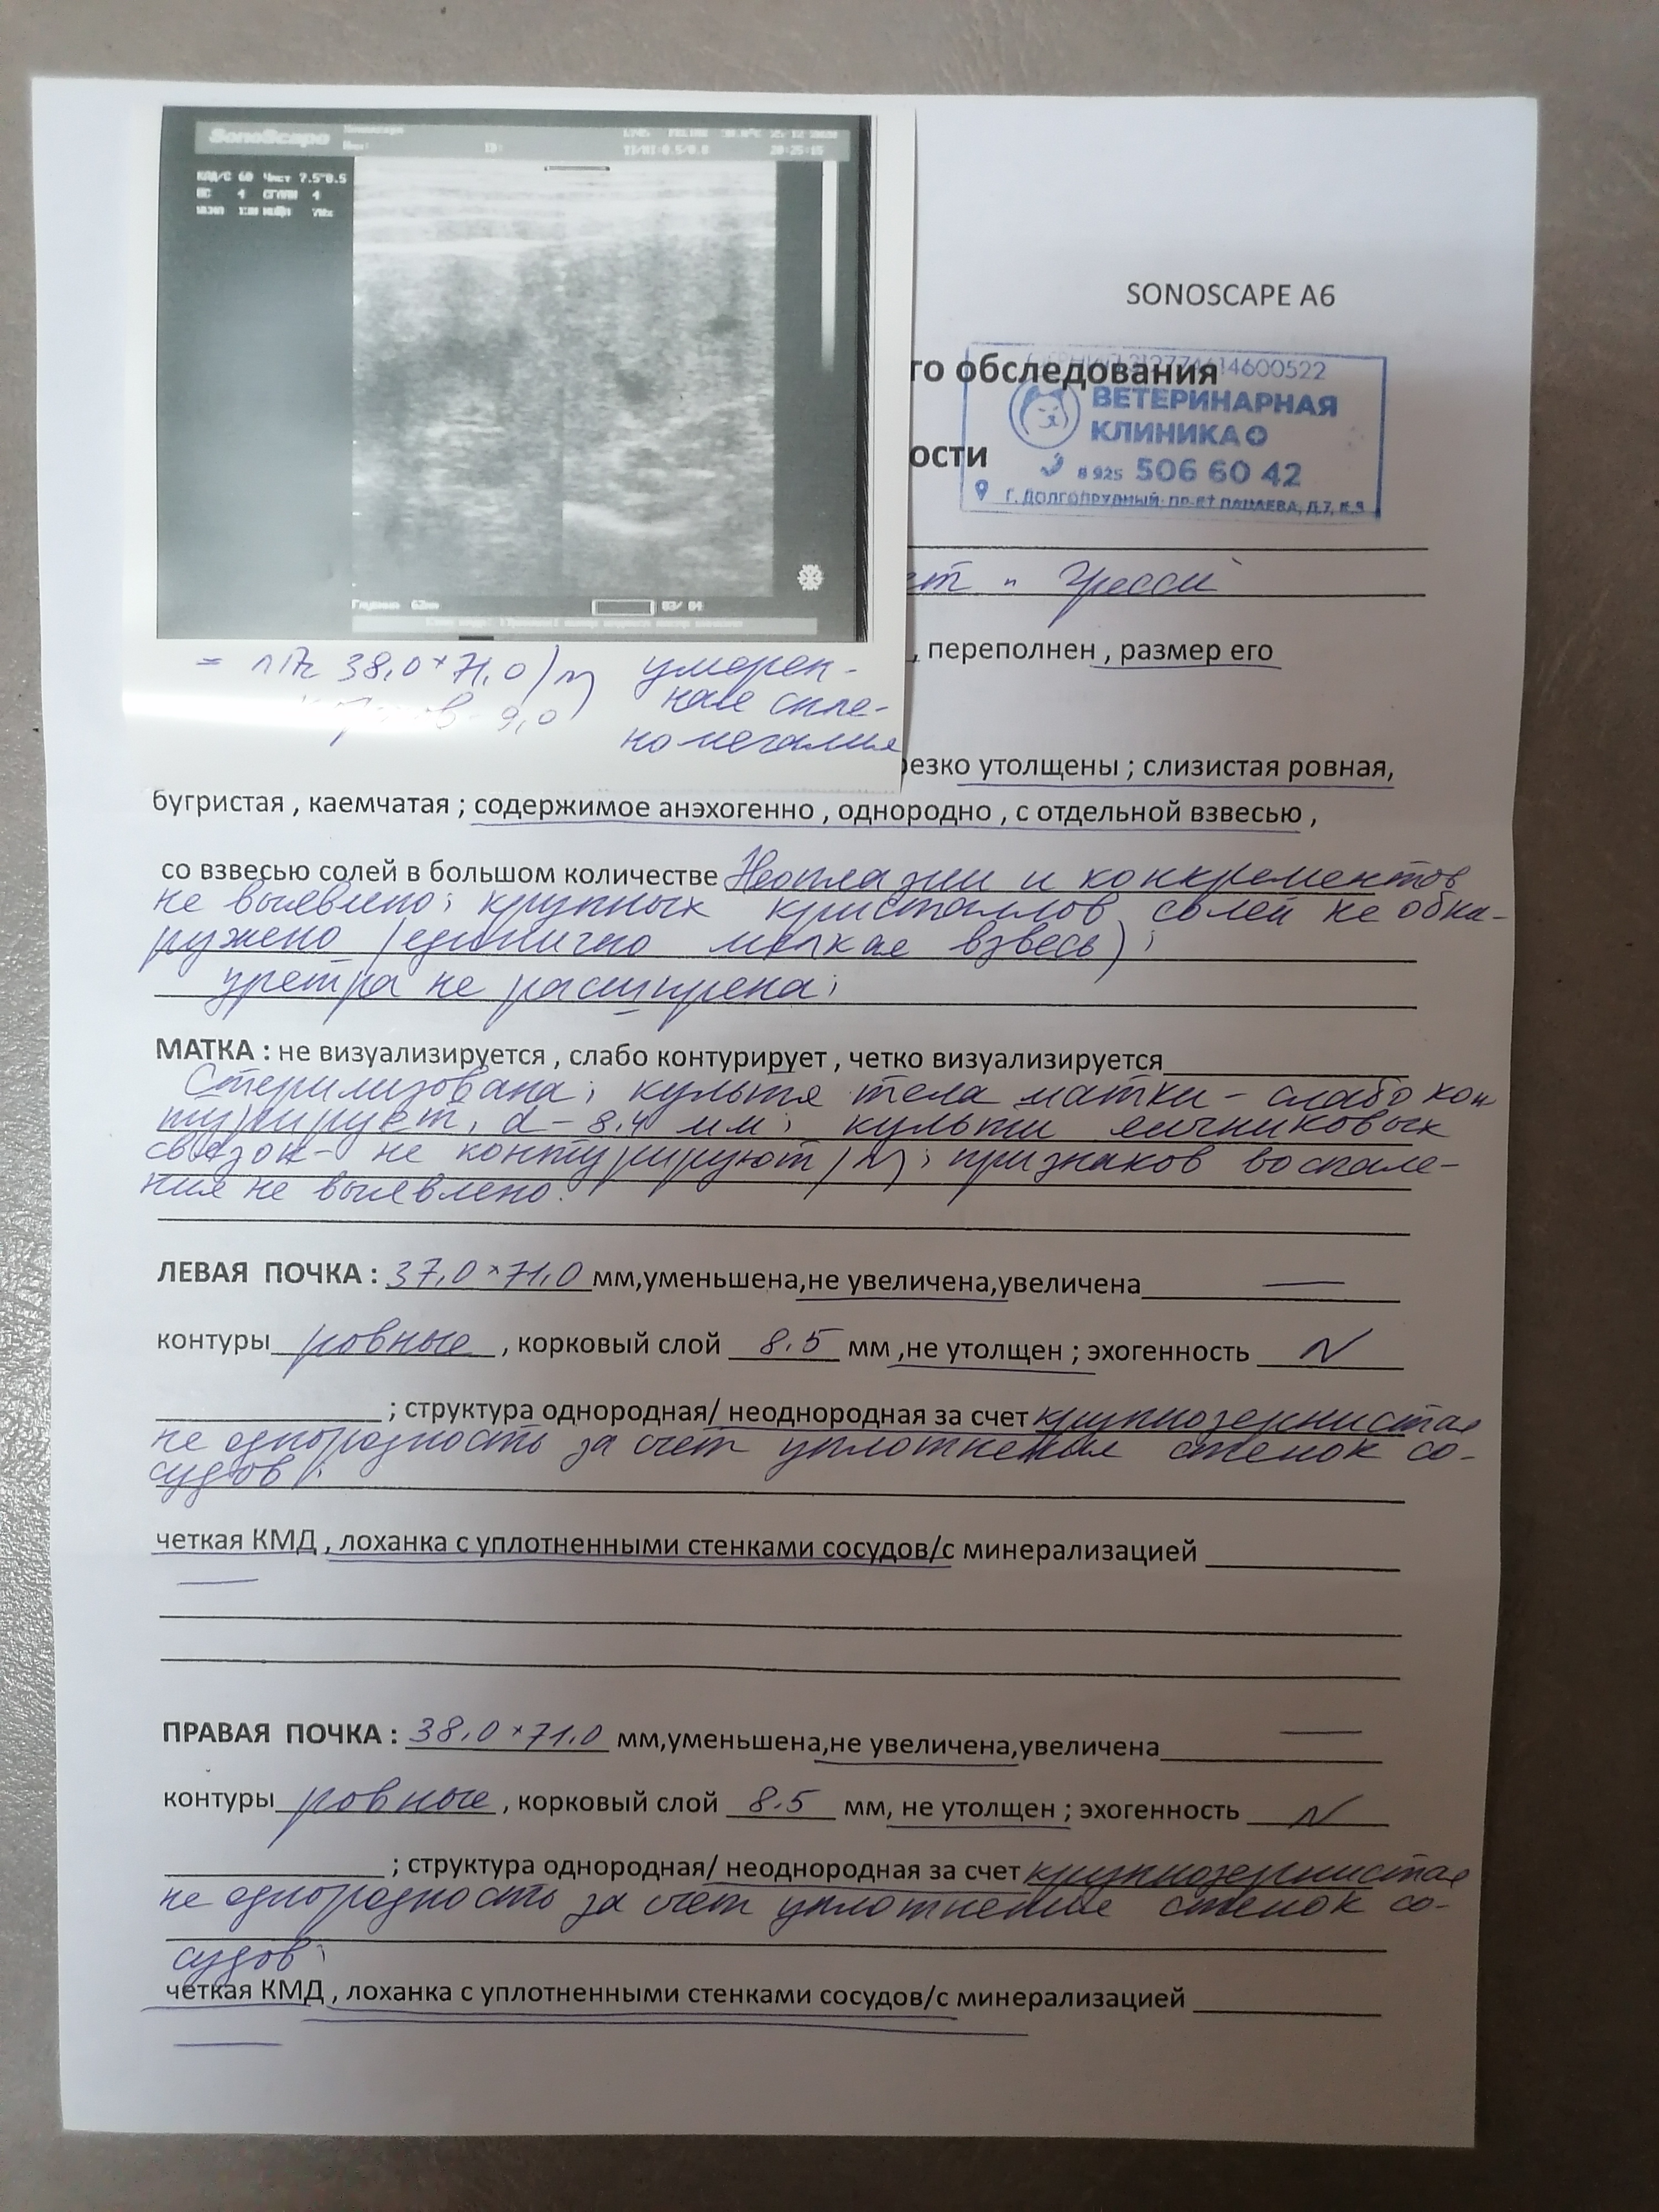 SonoScape
КАД/С 60 Част 7.5~8.5
4 4
20:25:15
Глубина 62мм 03/ 04
38,0×71,0) N умерен-
9,0 ная спле-
номегалия
SONOSCAPE A6
го обследования
14600522
ВЕТЕРИНАРНАЯ
КЛИНИКА
ости
8 925 506 60 42
Г. ДОЛГОПРУДНЫЙ, ПР-КТ ПАЦАЕВА, Д.7, К.9
, переполнен , размер его
резко утолщены ; слизистая ровная,
бугристая , каемчатая ; содержимое анэхогенно , однородно , с отдельной взвесью ,
со взвесью солей в большом количестве Неоплазии и конкрементов
не выявлено; крупных кристаллов солей не обна-
ружено (единично мелкая взвесь);
уретра не расширена;
МАТКА : не визуализируется , слабо контурирует , четко визуализируется
Стерилизована; культя тела матки - слабо кон
турирует, d - 8,4 мм; культи яичниковых
связок - не контурируют (N); признаков воспале-
ния не выявлено.
ЛЕВАЯ ПОЧКА : 37,0×71,0 мм,уменьшена,не увеличена,увеличена —
контуры ровные , корковый слой 8.5 мм ,не утолщен ; эхогенность N
; структура однородная/ неоднородная за счет крупнозернистая
неоднородность за счет уплотнения стенок со-
судов;
четкая КМД , лоханка с уплотненными стенками сосудов/с минерализацией
—
ПРАВАЯ ПОЧКА : 38,0×71,0 мм,уменьшена,не увеличена,увеличена —
контуры ровные , корковый слой 8.5 мм, не утолщен ; эхогенность N
; структура однородная/ неоднородная за счет крупнозернистая
неоднородность за счет уплотнения стенок со-
судов;
четкая КМД , лоханка с уплотненными стенками сосудов/с минерализацией
—